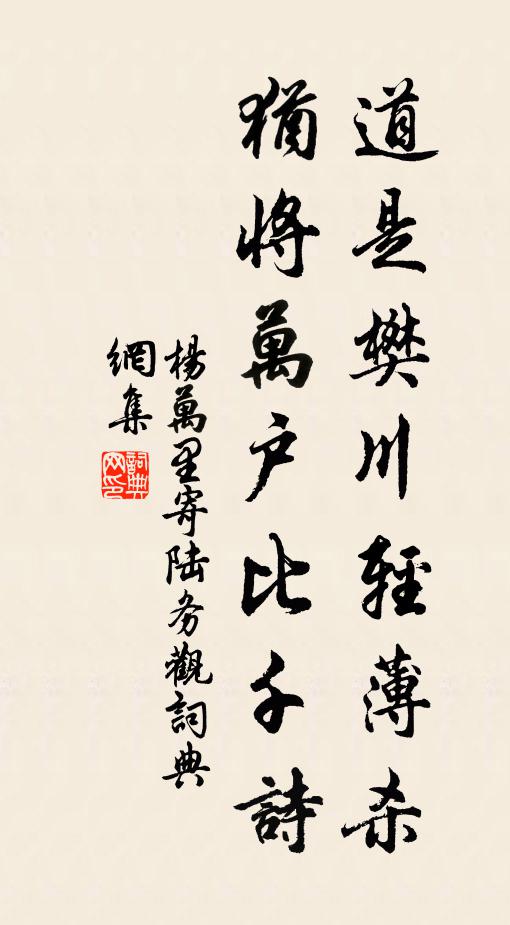 道是樊川輕薄杀
猶將萬户比千詩
楊萬里寄陆务觀詞典
網集
詞典网印